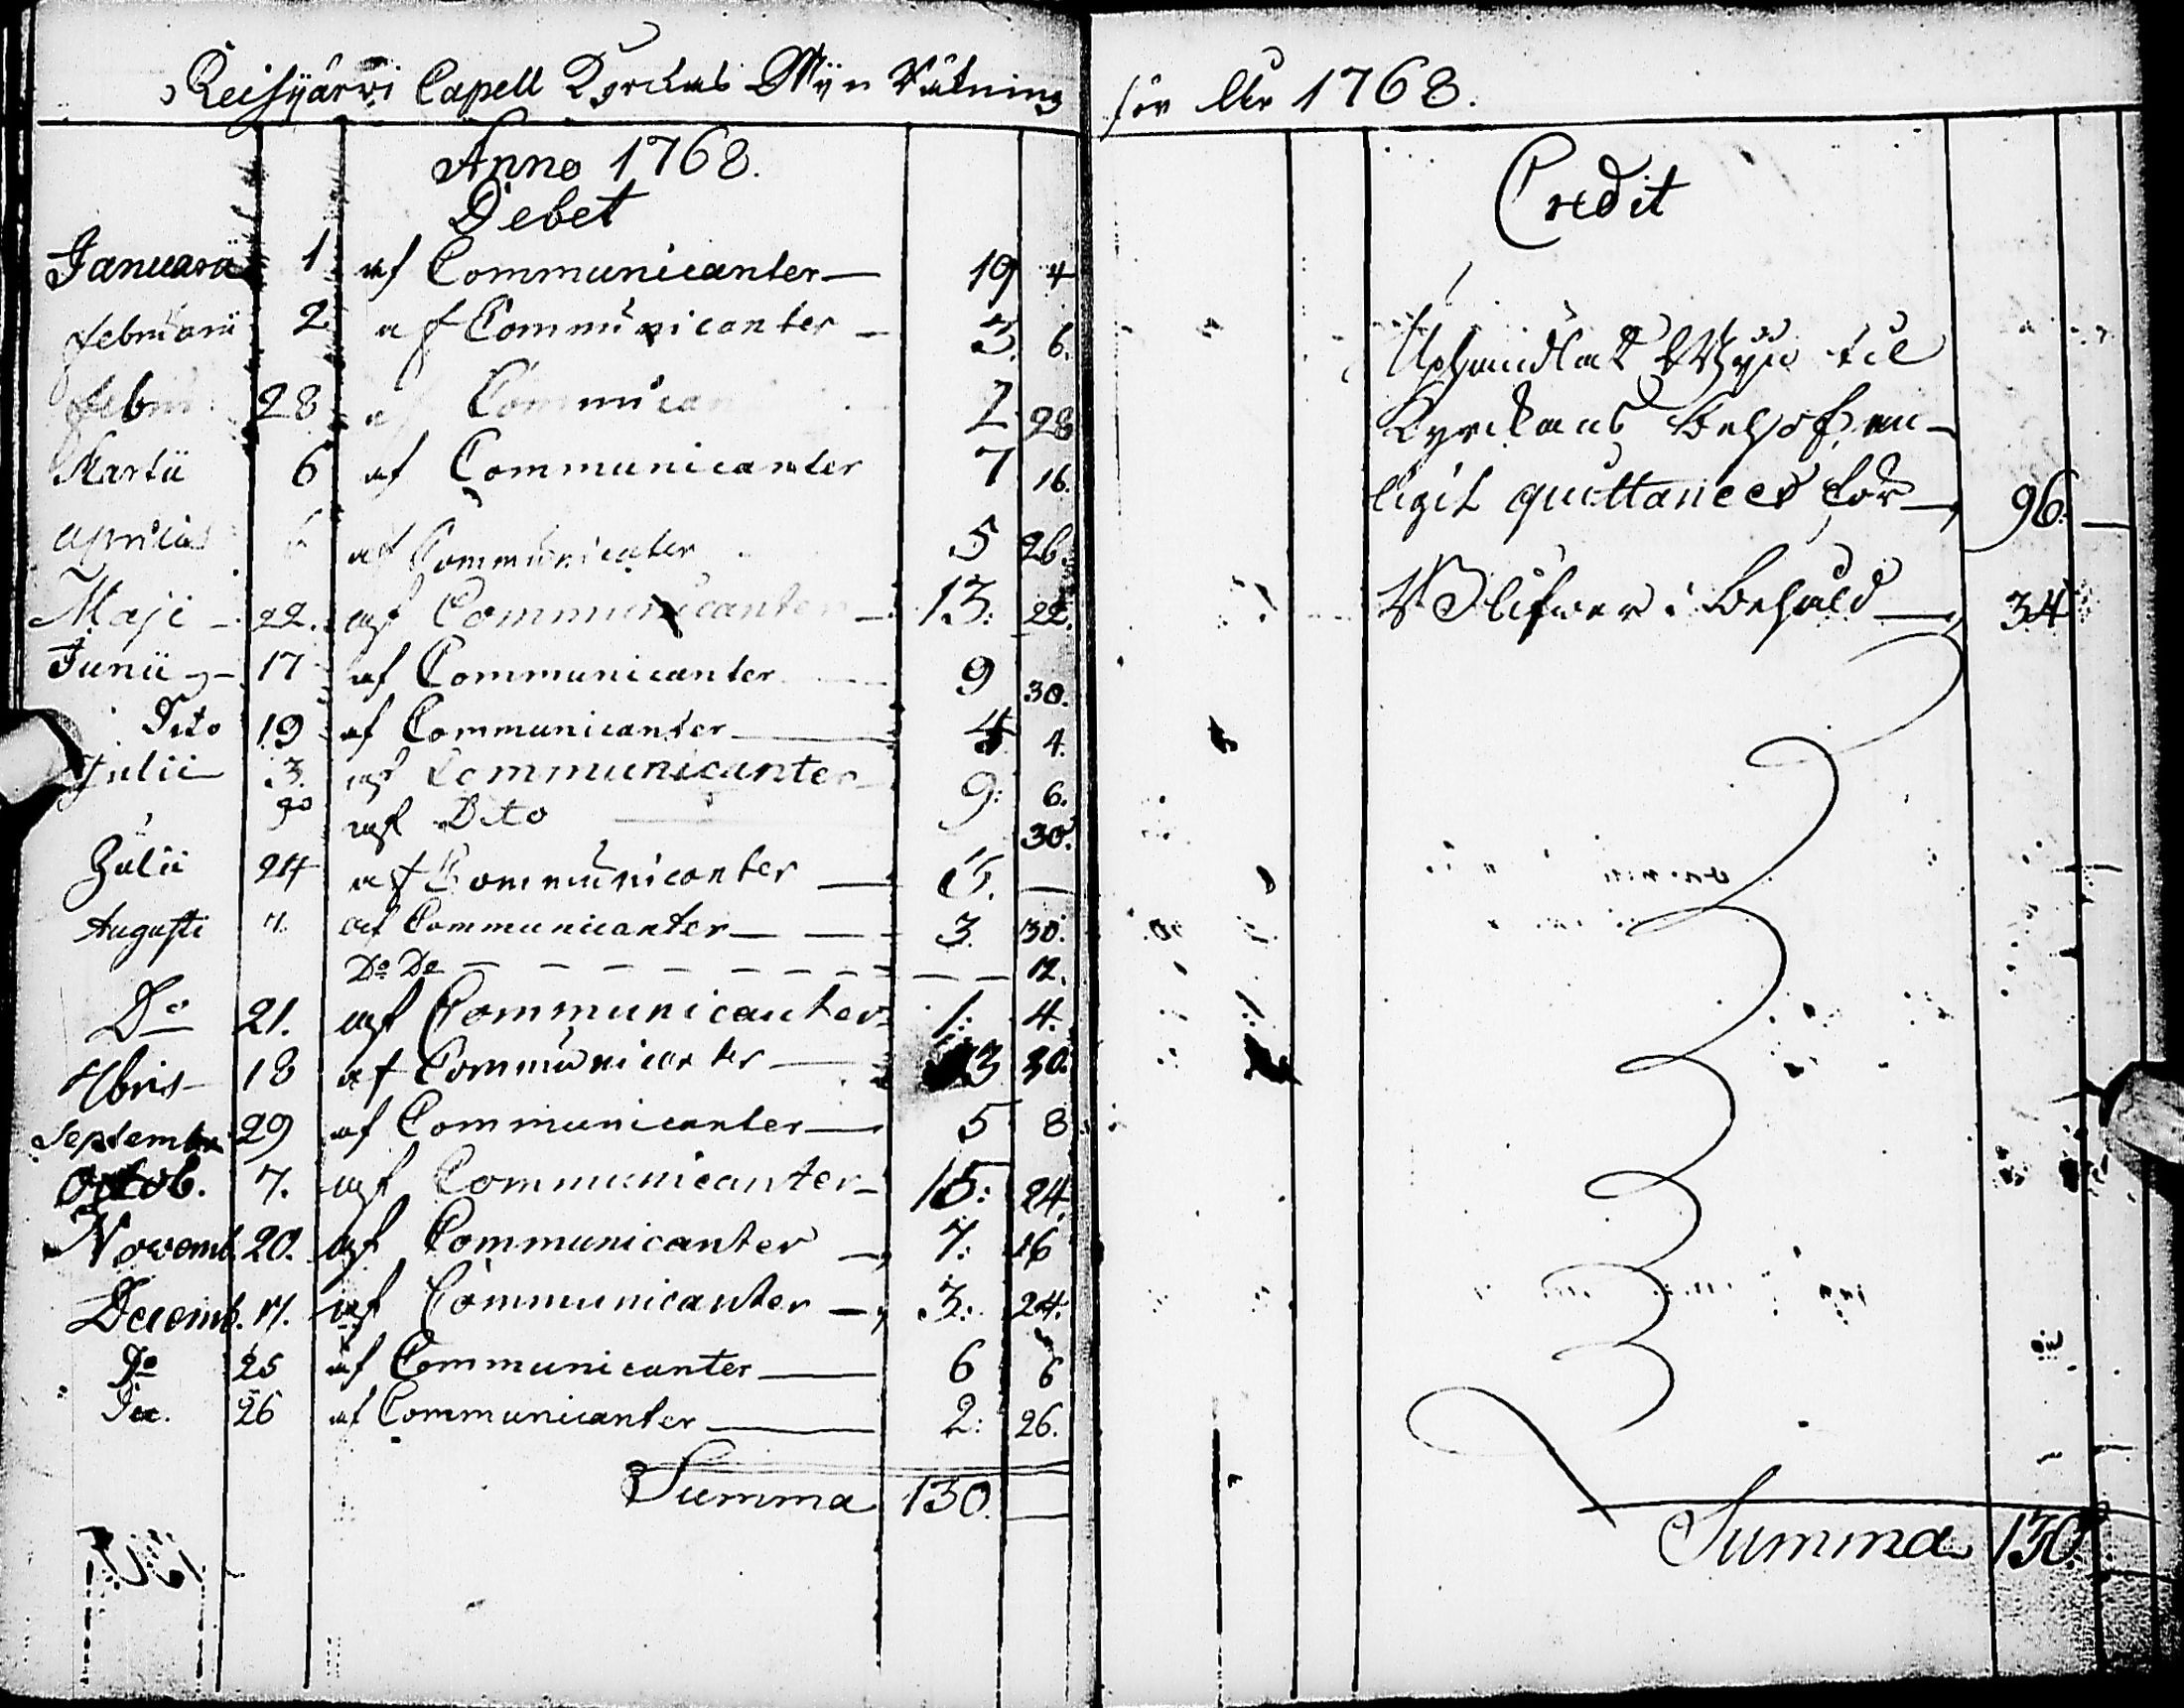 Reisjärwi Capell Kyrckas Wyn Räkning
Anno 1768.
Debet
Januarii 1 af Communicanter 19 4
Februarii 2 af Communicanter 3. 6.
Febru 28 a Communican 2 28
Martii 6 af Communicanter 7 16.
Aprilis af Communicater 5 26.
Maji 22. af Communicanter 13: 22.
Junii 17 af Communicanter 9 30.
Dito 19 af Communicanter 4 4.
Julii 3. af Communicanter 9: 6.
af Dito 30.
Julii 24 af Communicanter 5. —
Augusti 7. af Communicanter 3. 30.
Do Do 12.
Do 21. af Communicanter 1: 4.
7bris 18 af Communicanter 3 30.
Septembr 29 af Communicanter 5 8
Octob. 7. af Communicanter 15: 24.
Novemb. 20. af Communicanter 7: 16
Decemb. 17. af Communicanter 3: 24.
Do 25 af Communicanter 6 6
Dec. 26 af Communicanter 2: 26.
Summa 130. —
för åhr 1768.
Credit
Uphandlat Wyn til
Kyrckans behof en-
ligit quittancer för 96. —
Blifwer i behåld 34
Summa 130.